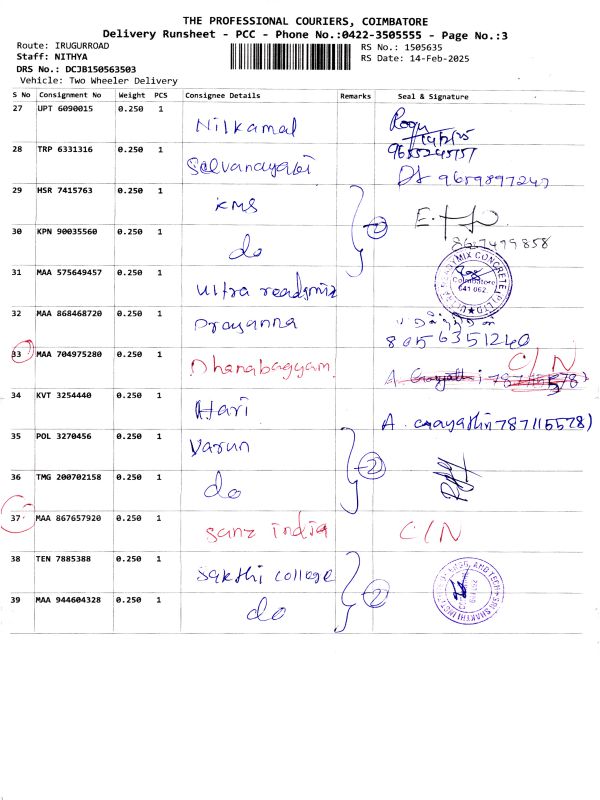 THE PROFESSIONAL COURIERS, COIMBATORE
Delivery Runsheet - PCC - Phone No.:0422-3505555 - Page No.:3
Route: IRUGURROAD
RS No.: 1505635
Staff: NITHYA
RS Date: 14-Feb-2025
DRS No.: DCJB150563503
Vehicle: Two Wheeler Delivery
S No Consignment No Weight PCS Consignee Details Remarks Seal & Signature
27 UPT 6090015 0.250 1 Nilkamal
9655245151
28 TRP 6331316 0.250 1 Selvanayaki 9659897247
29 HSR 7415763 0.250 1 KMS 2
30 KPN 90035560 0.250 1 do 8667499858
31 MAA 575649457 0.250 1 Ultra readymix
Coimbatore
641 062
32 MAA 868468720 0.250 1 Prasanna
8056351240
33 MAA 704975280 0.250 1 Dhanabagyam C/N
34 KVT 3254440 0.250 1 Hari A. 7871155781
35 POL 3270456 0.250 1 Varun 2
36 TMG 200702158 0.250 1 do
37 MAA 867657920 0.250 1 Sanz india C/N
38 TEN 7885388 0.250 1 Sakthi college 2
39 MAA 944604328 0.250 1 do